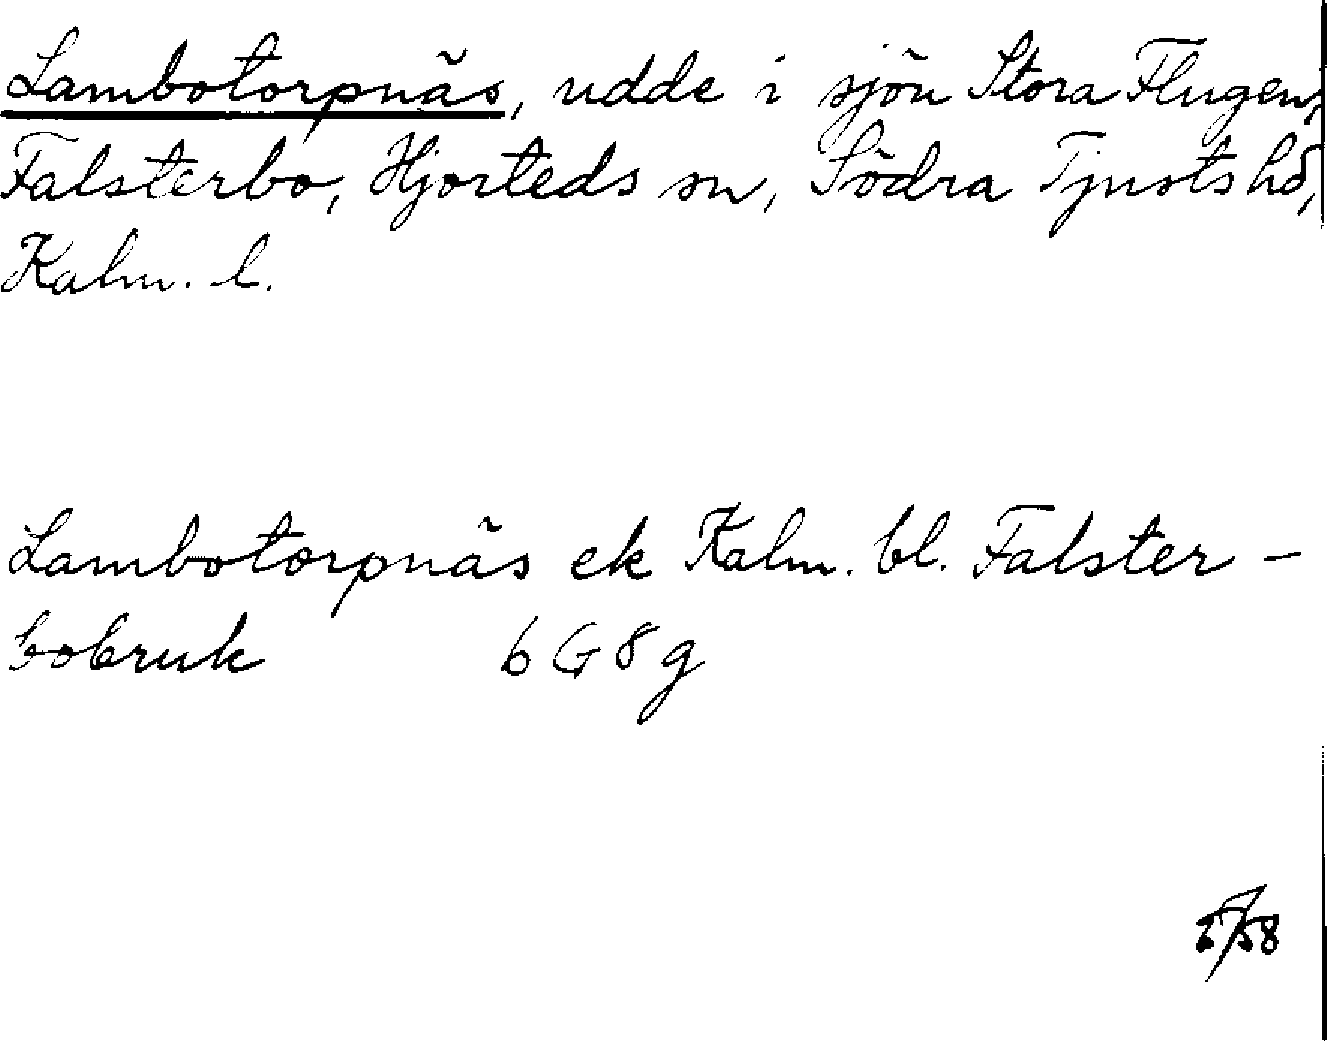 Lambotorpnäs, udde i sjön Stora Flugen,
Falsterbo, Hjorteds sn, Södra Tjusts hd,
Kalm. l.
Lambotorpnäs ek Kalm. bl. Falster-
bobruk 6G8g